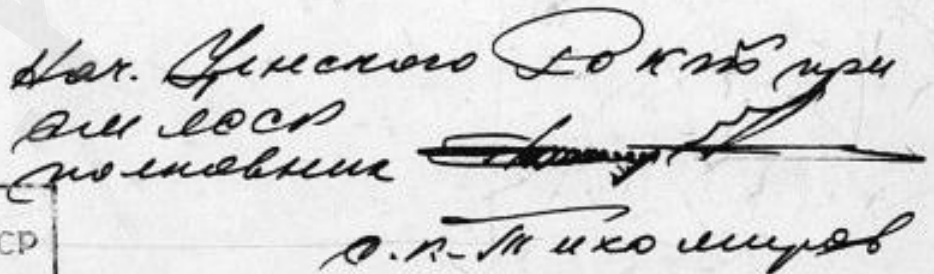 Нач. Уенского РО КГБ при
СМ ЛССР
полковник
С.К. Тихомиров
СР